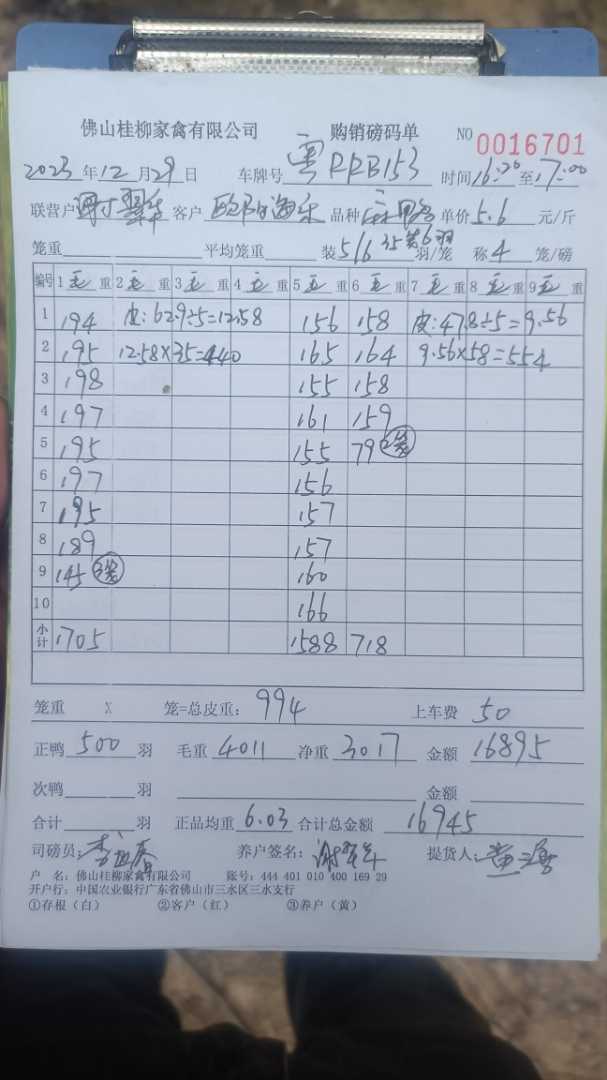 佛山桂柳家禽有限公司 购销磅码单 NO 0016701
2023年12月29日 车牌号 粤RRB153 时间16:20至17:00
联营户 客户 品种 单价5.6元/斤
笼重 平均笼重 装5/6 35笼6羽 羽/笼 称4笼/磅
编号 1毛重 2毛重 3毛重 4毛重 5毛重 6毛重 7毛重 8毛重 9毛重
1 194 皮:62.9÷5=12.58 156 158 皮:47.8÷5=9.56
2 195 12.58×35=440 165 164 9.56×58=554
3 198 155 158
4 197 161 159
5 195 155 79 2笼
6 197 156
7 195 157
8 189 157
9 145 3笼 160
10 166
小计 1705 1588 718
笼重 X 笼=总皮重: 994 上车费 50
正鸭 500 羽 毛重 4011 净重 3017 金额 16895
次鸭 羽 金额
合计 羽 正品均重 6.03 合计总金额 16945
司磅员: 养户签名: 提货人:
户 名: 佛山桂柳家禽有限公司 账号: 444 401 010 400 169 29
开户行: 中国农业银行广东省佛山市三水区三水支行
①存根(白) ②客户(红) ③养户(黄)